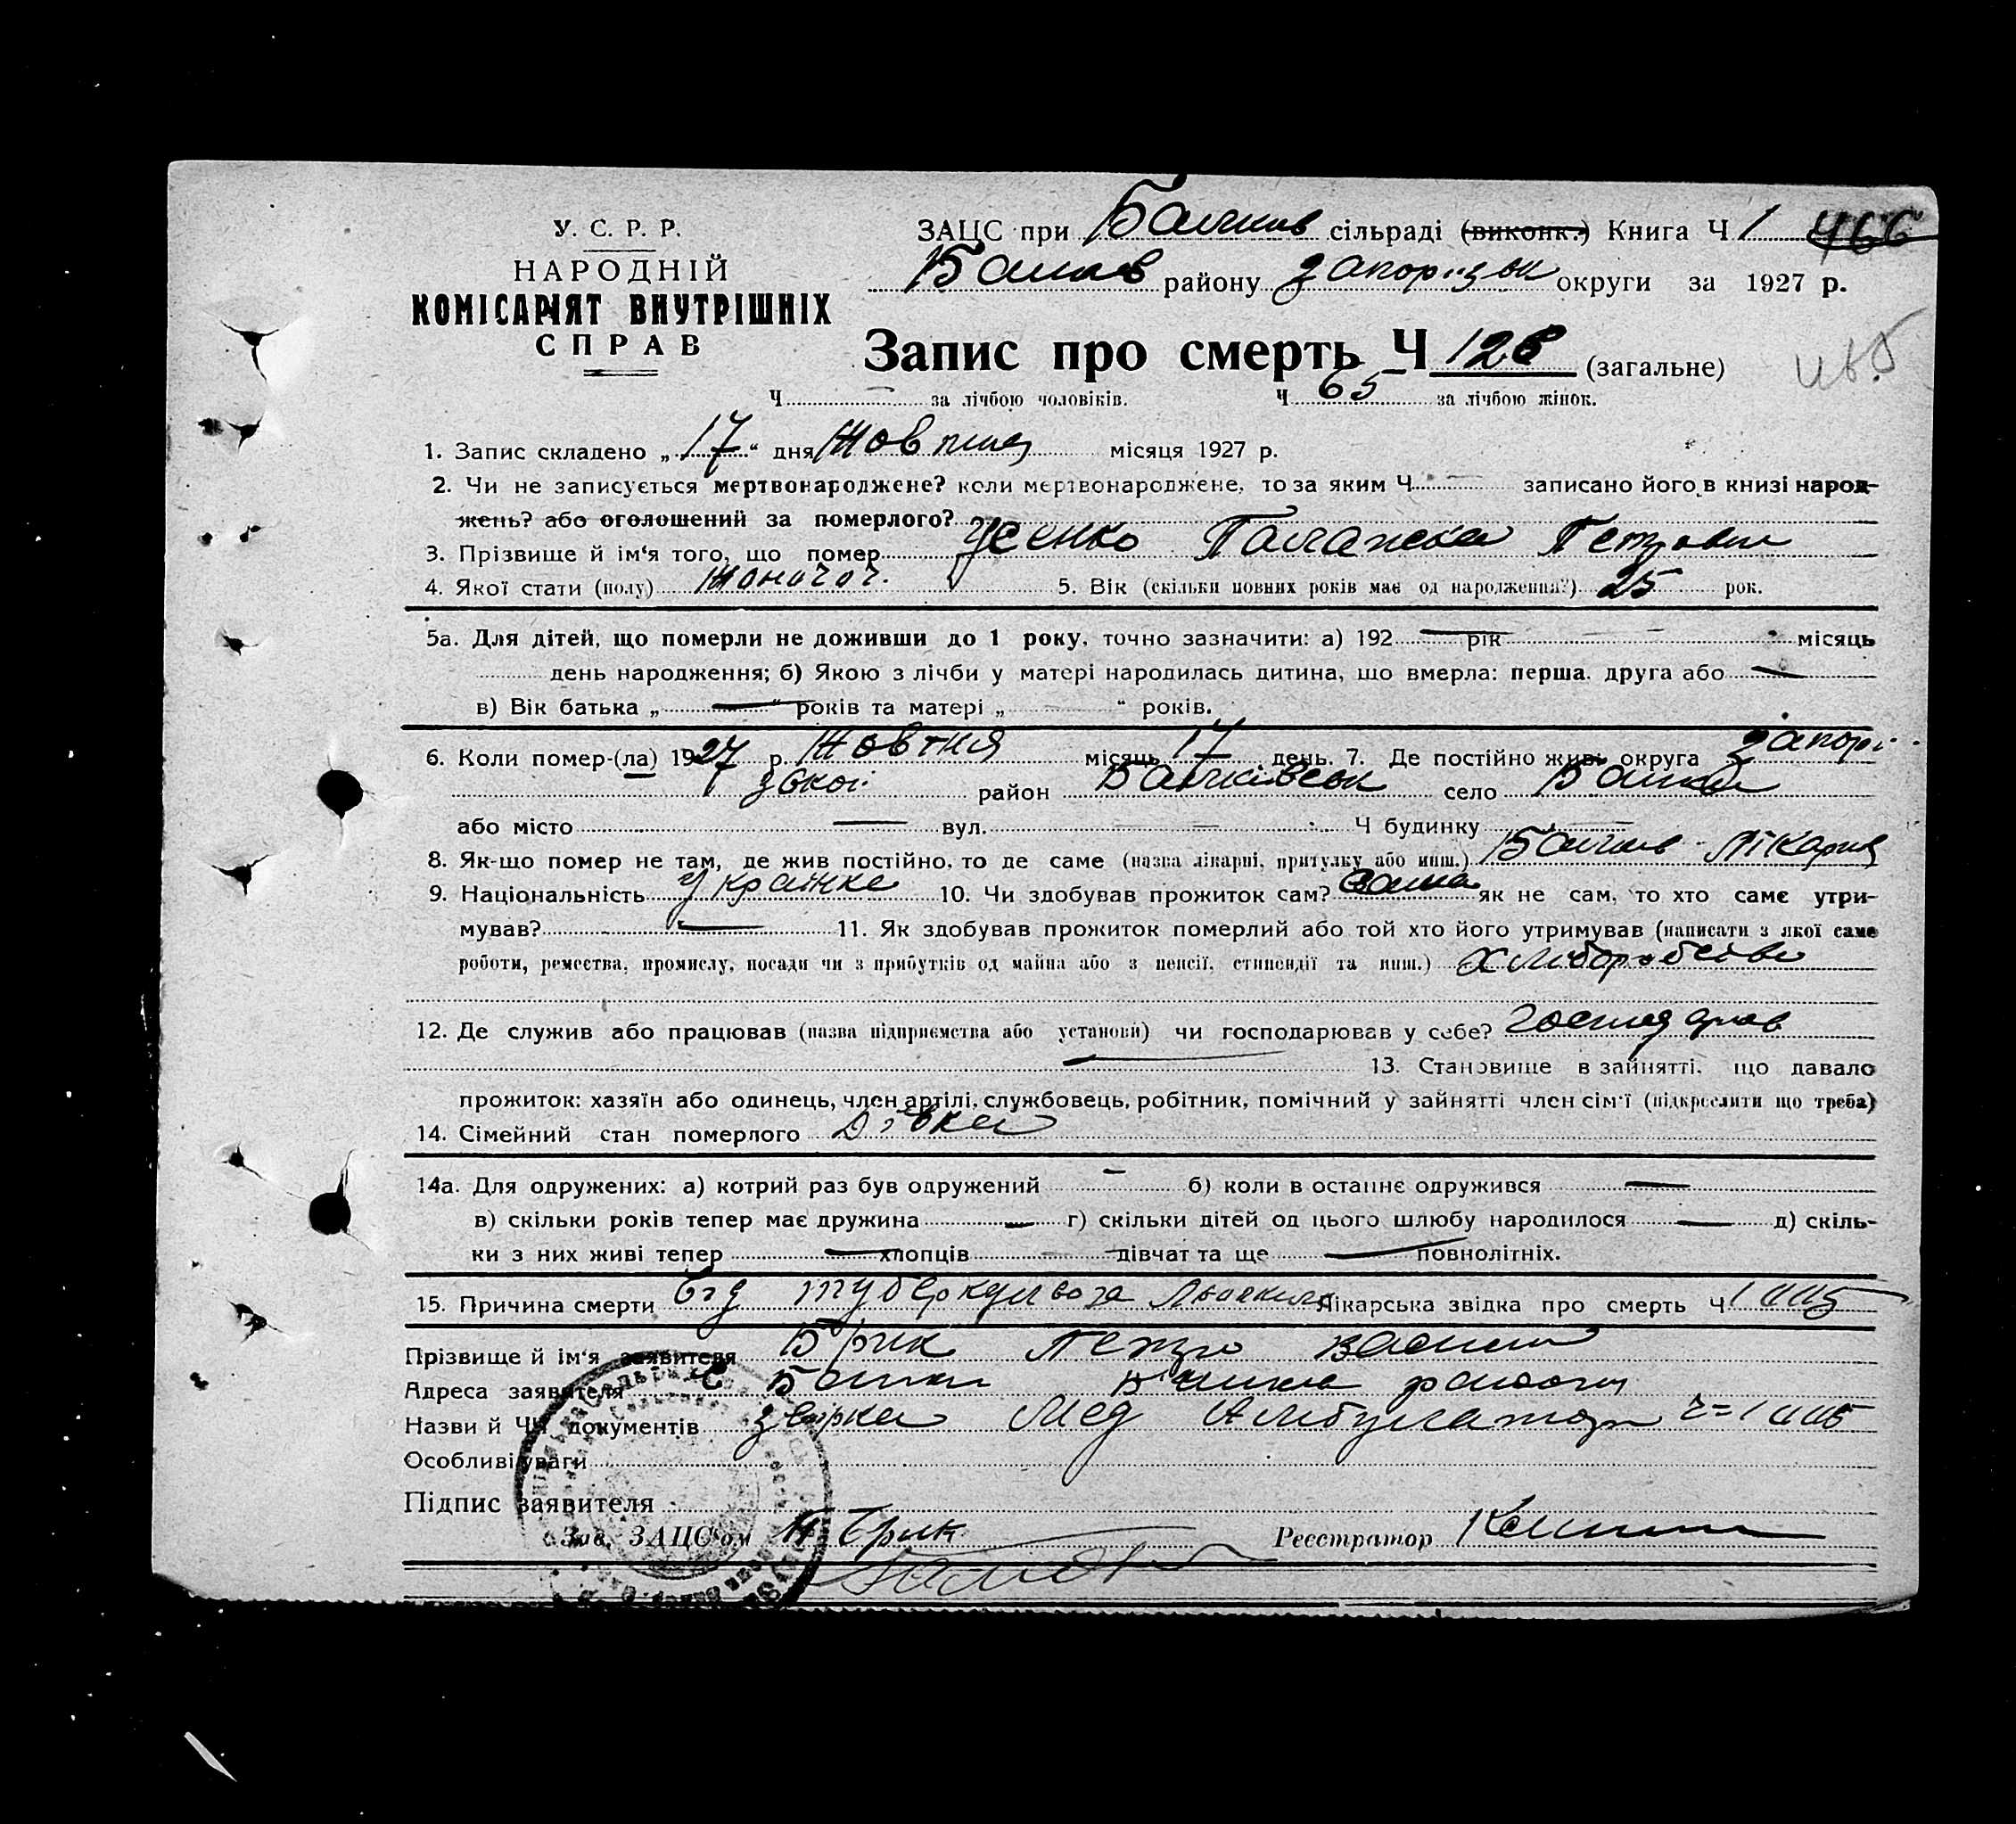 У. С. Р. Р.
НАРОДНІЙ
КОМІСАРІЯТ ВНУТРІШНІХ
СПРАВ
ЗАЦС при сільраді (виконк.) Книга Ч 1 466
району Запорізьк округи за 1927 р.
Запис про смерть Ч 126 (загальне)
Ч за лічбою чоловіків. Ч 65 за лічбою жінок.
1. Запис складено „ 17 “ дня Жовтня місяця 1927 р.
2. Чи не записується мертвонароджене? коли мертвонароджене, то за яким Ч — записано його в книзі народ-
жень? або оголошений за померлого?
3. Прізвище й ім'я того, що помер Усенко Палажка Петровн
4. Якої стати (полу) Жіночої. 5. Вік (скільки повних років має од народження?) 25 рок.
5а. Для дітей, що померли не доживши до 1 року, точно зазначити: а) 192 — рік — — місяць
день народження; б) Якою з лічби у матері народилась дитина, що вмерла: перша, друга або —
в) Вік батька „ — “ років та матері „ — “ років.
6. Коли помер-(ла) 1927 р. Жовтня місяць 17 день. 7. Де постійно жив: округа Запорі-
зької район село
або місто — вул. — Ч будинку —
8. Як-що помер не там, де жив постійно, то де саме (назва лікарні, притулку або инш.) Лікарня
9. Національність Українка 10. Чи здобував прожиток сам? Сама як не сам, то хто саме утри-
мував? — 11. Як здобував прожиток померлий або той хто його утримував (написати з якої саме
роботи, ремества, промислу, посади чи з прибутків од майна або з пенсії, стипендії та инш.) Хліборобство
12. Де служив або працював (назва підприємства або установи) чи господарював у себе? господарюв
— 13. Становище в зайнятті, що давало
прожиток: хазяїн або одинець, член артілі, службовець, робітник, помічний у зайнятті член сім'ї (підкреслити що треба)
14. Сімейний стан померлого Дівка
14а. Для одружених: а) котрий раз був одружений — б) коли в останнє одружився —
в) скільки років тепер має дружина — г) скільки дітей од цього шлюбу народилося — д) скіль-
ки з них живі тепер — хлопців — дівчат та ще — повнолітніх.
15. Причина смерти Від туберкульоза Лікарська звідка про смерть Ч
Прізвище й ім'я заявителя Брик Петро Васил
Адреса заявителя С району
Назви й ЧЧ документів Мед Амбулатор
Особливі уваги
Підпис заявителя
Зав. ЗАЦС'ом Брик Реєстратор